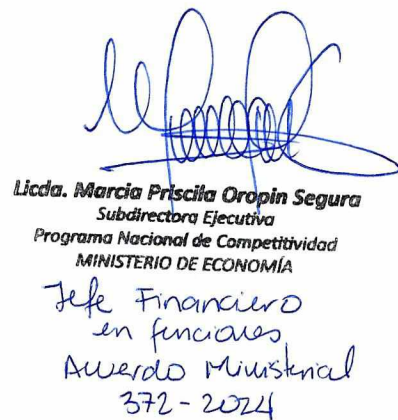 Licda. Marcia Priscila Oropin Segura
Subdirectora Ejecutiva
Programa Nacional de Competitividad
MINISTERIO DE ECONOMÍA
Jefe Financiero
en funciones
Acuerdo Ministerial
372-2024